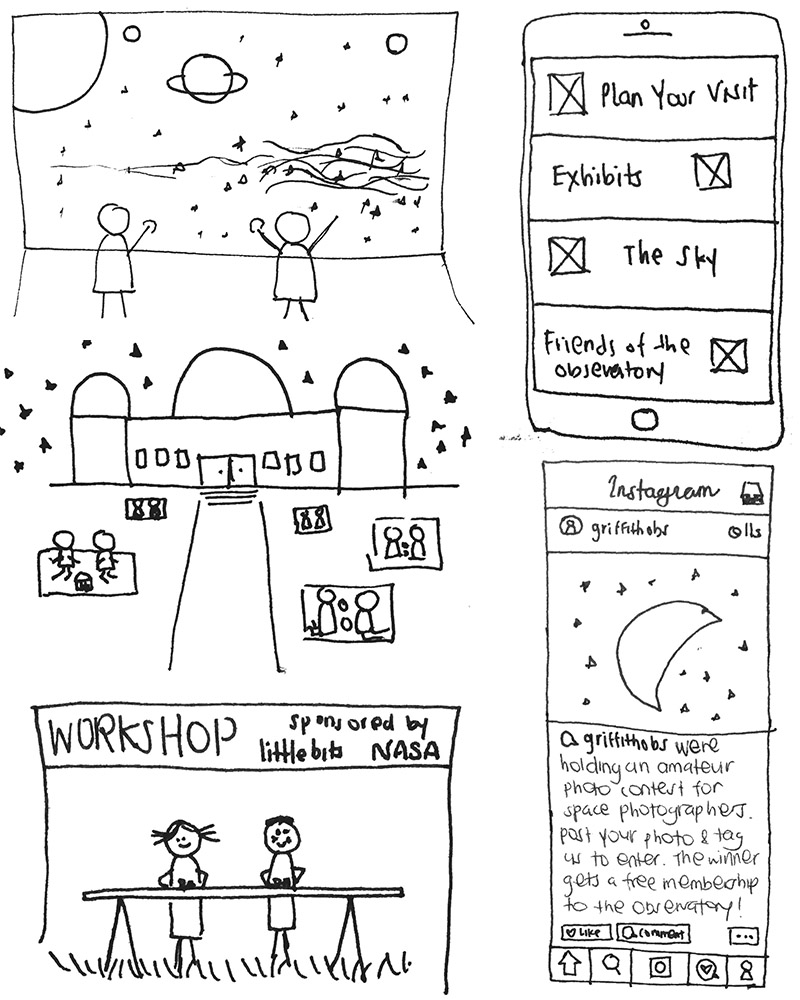 Plan Your Visit
Exhibits
The Sky
Friends of the
observatory
Instagram
griffithobs 11s
griffithobs were
holding an amateur
photo contest for
space photographers.
post your photo & tag
us to enter. The winner
gets a free membership
to the observatory!
Like comment ...
WORKSHOP sponsored by
littlebits NASA